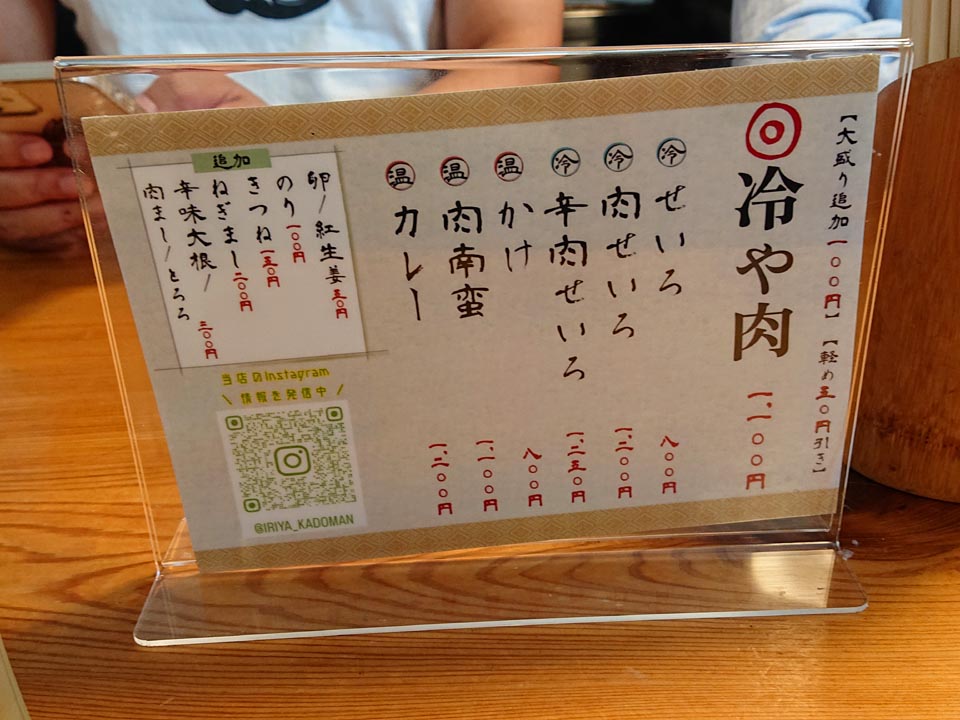 【大盛り追加一〇〇円】【軽め五〇円引き】
冷や肉 一、一〇〇円
冷 せいろ 八〇〇円
冷 肉せいろ 一、二〇〇円
冷 辛肉せいろ 一、二五〇円
温 かけ 八〇〇円
温 肉南蛮 一、一〇〇円
温 カレー 一、二〇〇円
追加
卵/紅生姜 五〇円
のり 一〇〇円
きつね 一五〇円
ねぎまし 二〇〇円
辛味大根/
肉まし/とろろ 三〇〇円
当店のInstagram
\ 情報を発信中 /
@IRIYA_KADOMAN